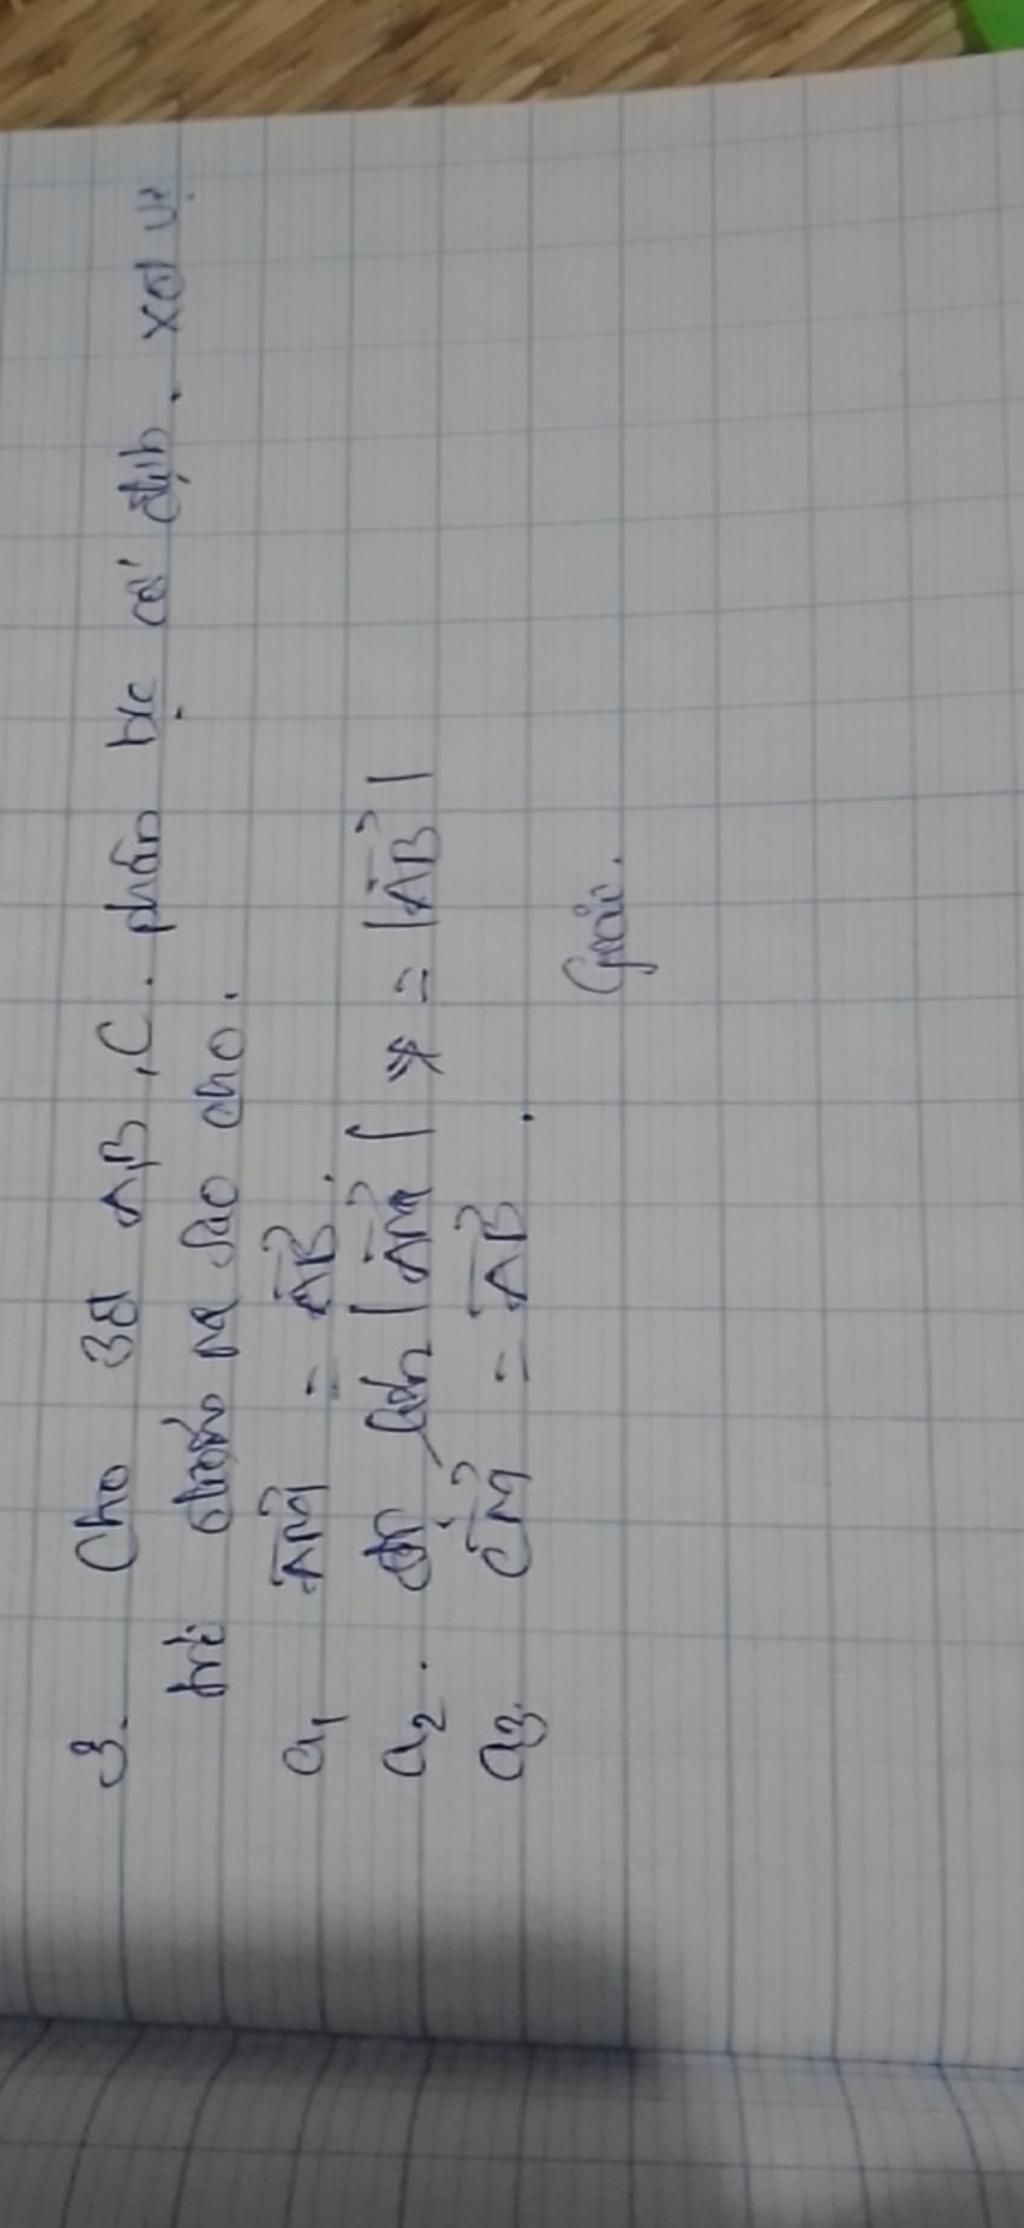 3. Cho 3đ A,B,C. phân bịc cố định. xđ vị
trí điểm M sao cho.
a1 \overrightarrow{AM} = \overrightarrow{AB}.
a2. độ lớn |\overrightarrow{AM}| = |\overrightarrow{AB}|
a3. \overrightarrow{CM} = \overrightarrow{AB}.
Giải.